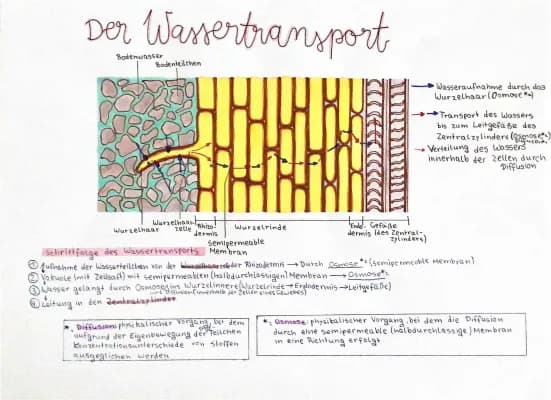 Der Wassertransport
Bodenwasser
Bodenteilchen
Wasseraufnahme durch das
Wurzelhaar (Osmose*²)
Transport des Wassers
bis zum Leitgefäße des
Zentralzylinders (Osmose*²)
Diffusion
Verteilung des Wassers
innerhalb der Zellen durch
Diffusion
Wurzelhaar
Wurzelhaar-
zelle
Rhizo-
dermis
Semipermeable
Membran
Wurzelrinde
Endo-
dermis
Gefäße
(des Zentral-
zylinders)
Schrittfolge des Wassertransports
① Aufnahme der Wasserteilchen von der Rhizodermis → Durch Osmose*² (semipermeable Membran)
② Vakuole (mit Zellsaft) mit semipermeablen (halbdurchlässigen) Membran → Osmose*²
③ Wasser gelangt durch Osmose ins Wurzelinnere (Wurzelrinde → Endodermis → Leitgefäße)
(innerhalb der Zellen eines Gewebes)
④ Leitung in den Zentralzylinder
*₁ Diffusion: physikalischer Vorgang, bei dem
aufgrund der Eigenbewegung der Teilchen
Konzentrationsunterschiede von Stoffen
ausgeglichen werden
*₂ Osmose: physikalischer Vorgang, bei dem die Diffusion
durch eine semipermeable (halbdurchlässige) Membran
in eine Richtung erfolgt